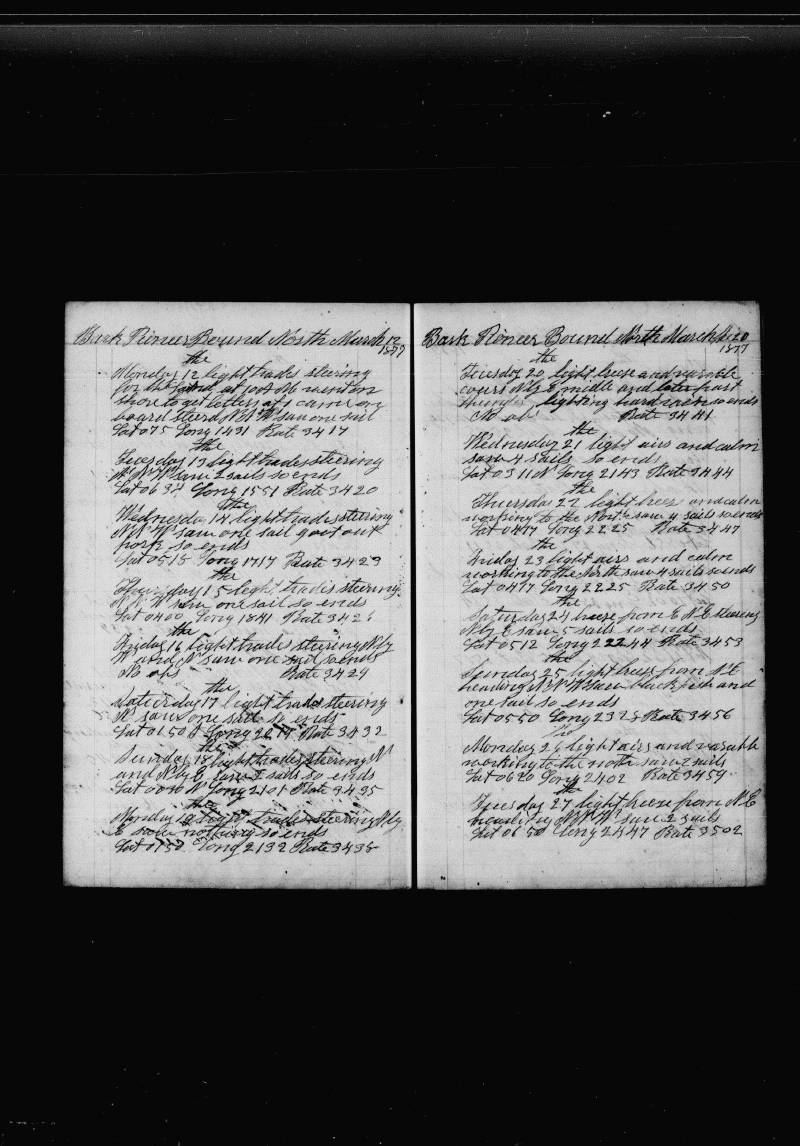 Bark Pioneer Bound North March 12
1877
the
Monday 12 light trades steering
for the at went on
shore to get letters at 5 came on
board steerd N W saw one sail
Lat 075 Long 1431 Rate 3417
the
Tuesday 13 light trades steering
N N W saw 2 sails so ends
Lat 06 34 Long 1551 Rate 3420
the
Wednesday 14 light trades steering
N N W saw one sail got out
pork so ends
Lat 0515 Long 1717 Rate 3423
the
Thursday 15 light trades steering
N N W saw one sail so ends
Lat 0400 Long 1841 Rate 3426
the
Friday 16 light trades steering N by
W and N saw one sail so ends
No obs Rate 3429
the
Saturday 17 light trades steering
N saw one sail so ends
Lat 0150 S Long 2017 Rate 3432
the
Sunday 18 light trades steering N
and N by E saw 2 sails so ends
Lat 0010 N Long 2101 Rate 3435
the
Monday 19 light trades steering N by
E saw nothing so ends
Lat 0150 Long 2132 Rate 3438
Bark Pioneer Bound North March 20
1877
the
Tuesday 20 light breese and varable
cours N by E midle and later part
thunder lighting hard rain so ends
No obs Rate 3441
the
Wednesday 21 light airs and calm
saw 4 sails so ends
Lat 0311 N Long 2143 Rate 3444
the
Thursday 22 light brees and calm
working to the North saw 4 sails so ends
Lat 0447 Long 2225 Rate 3447
the
Friday 23 light airs and calm
working to the North saw 4 sails so ends
Lat 0417 Long 2225 Rate 3450
the
Saturday 24 breese from E N E steering
N by E saw 5 sails so ends
Lat 0512 Long 2244 Rate 3453
the
Sunday 25 light breese from N E
heading N N W saw blackfish and
one sail so ends
Lat 0550 Long 2325 Rate 3456
the
Monday 26 light airs and varable
working to the north saw 2 sails
Lat 0620 Long 2402 Rate 3459
the
Tuesday 27 light breese from N E
heading N N W saw 2 sails
Lat 0650 Long 2447 Rate 3502